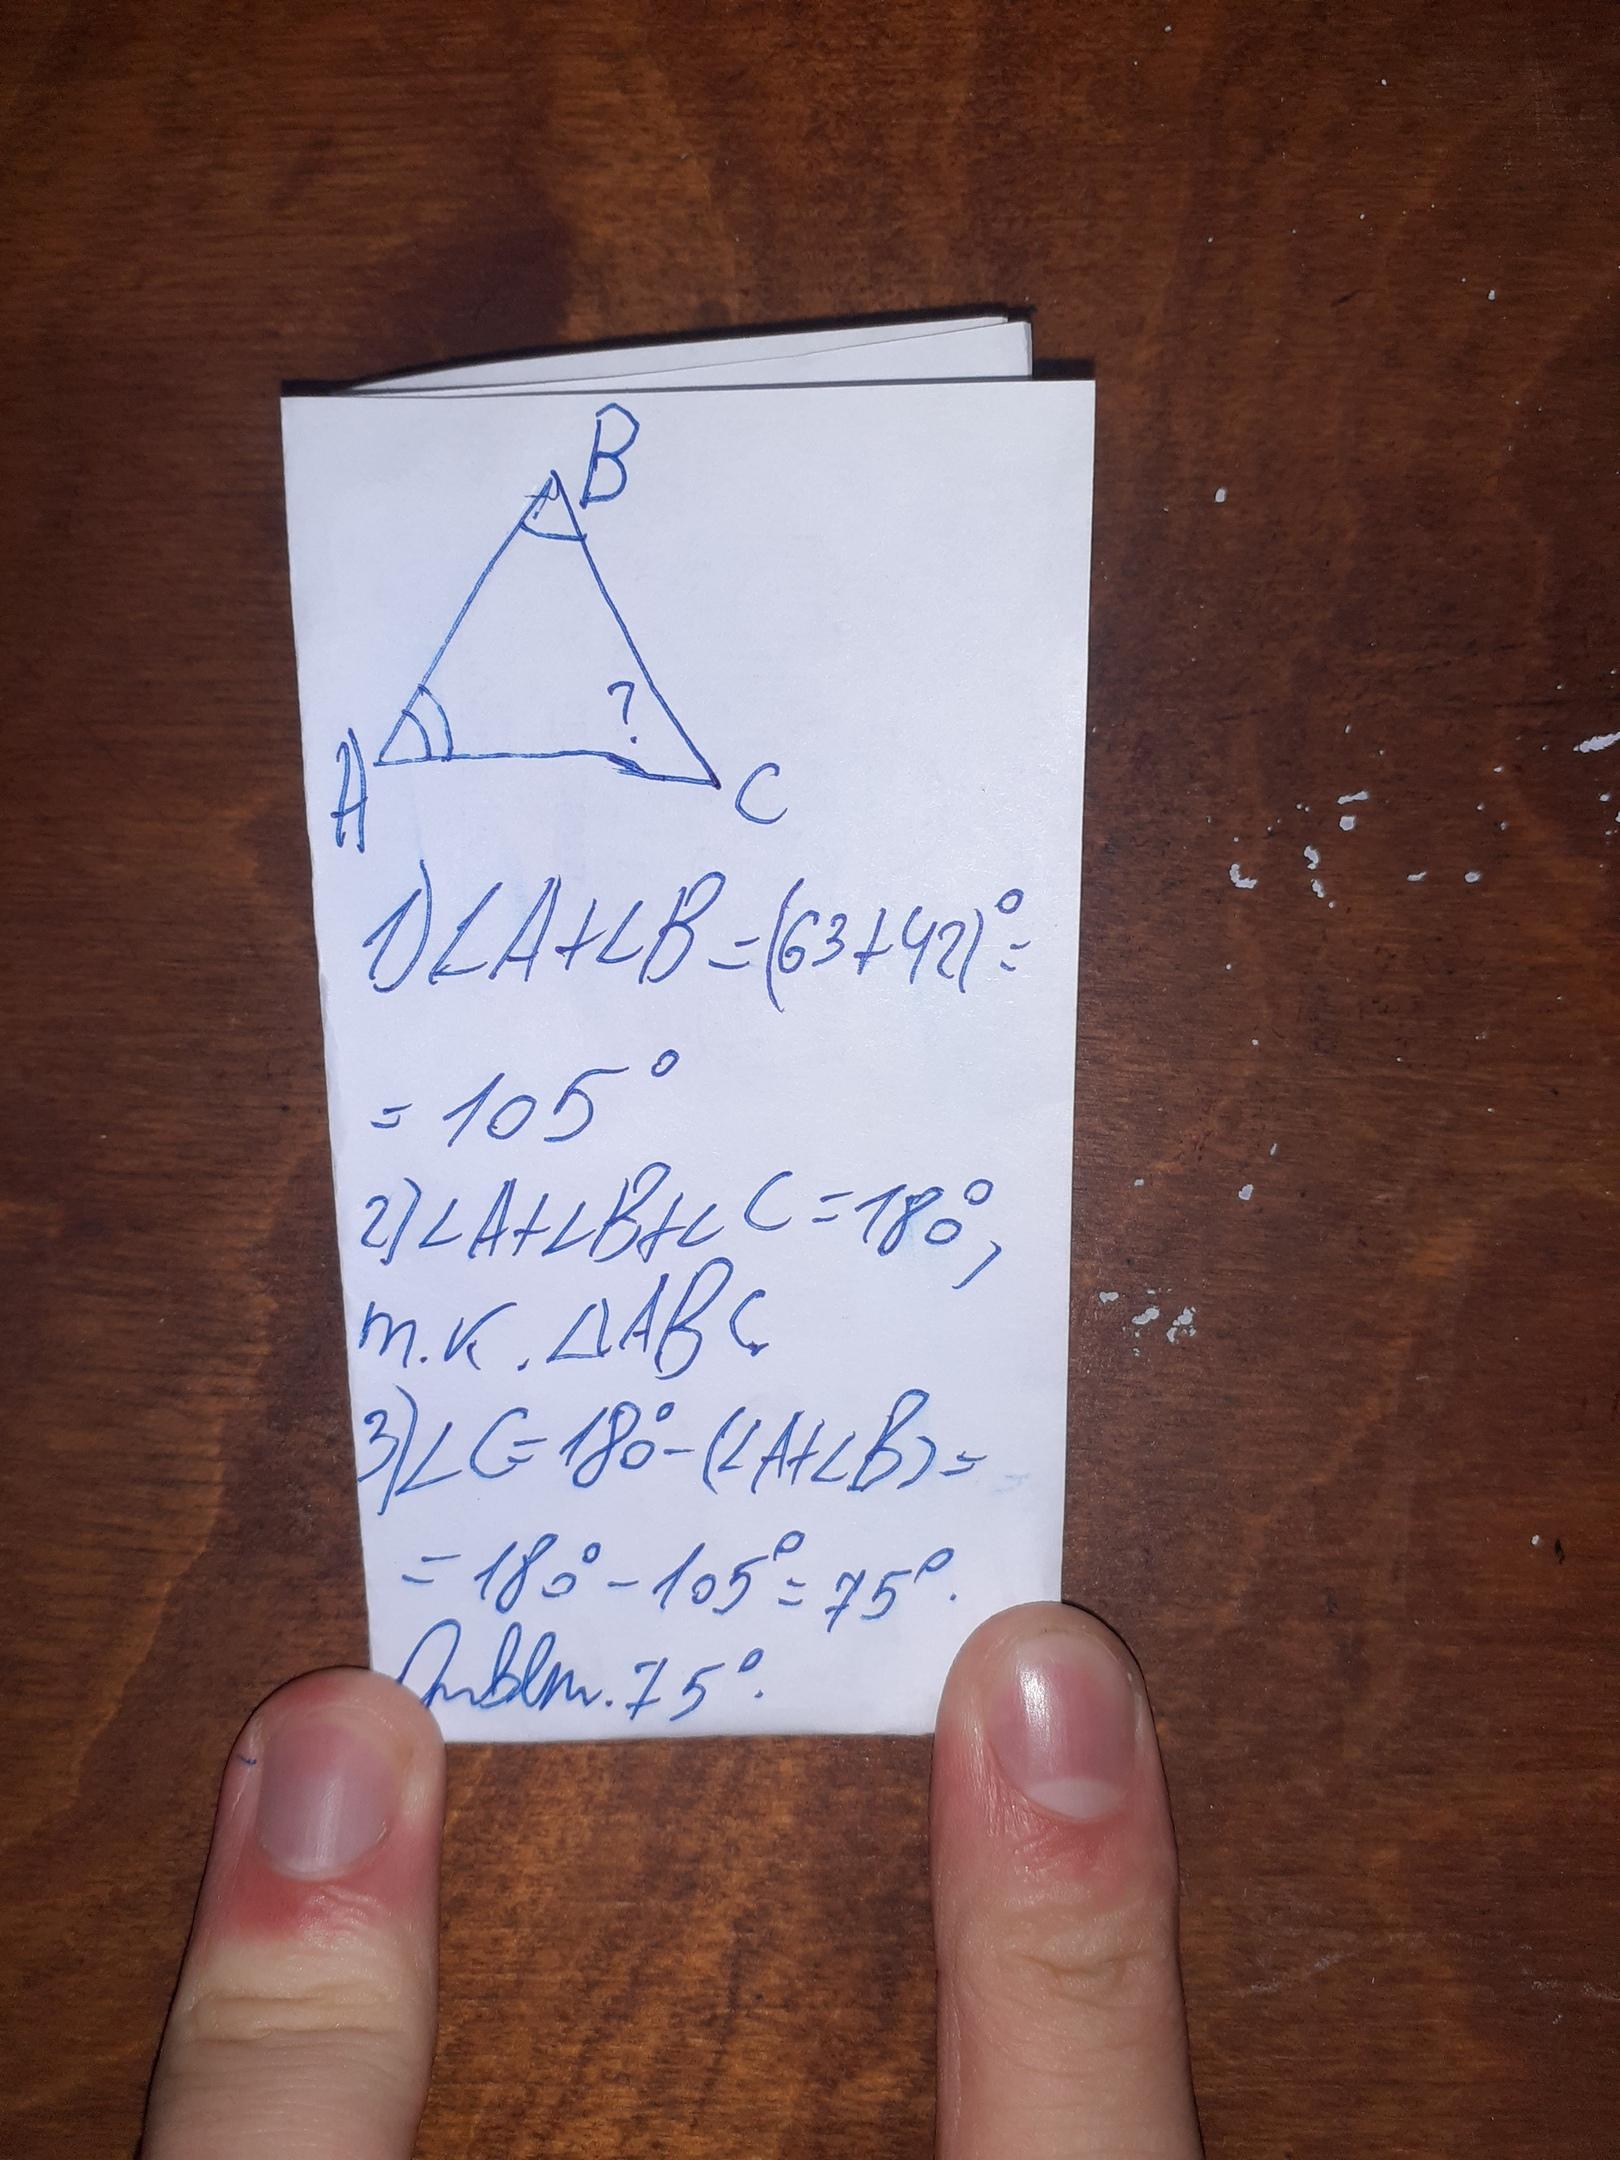 B
?
A
C
1) ∠A+∠B=(63+42)°=
=105°
2) ∠A+∠B+∠C=180°,
т.к. △ABC
3) ∠C=180°-(∠A+∠B)=
=180°-105°=75°.
Ответ. 75°.